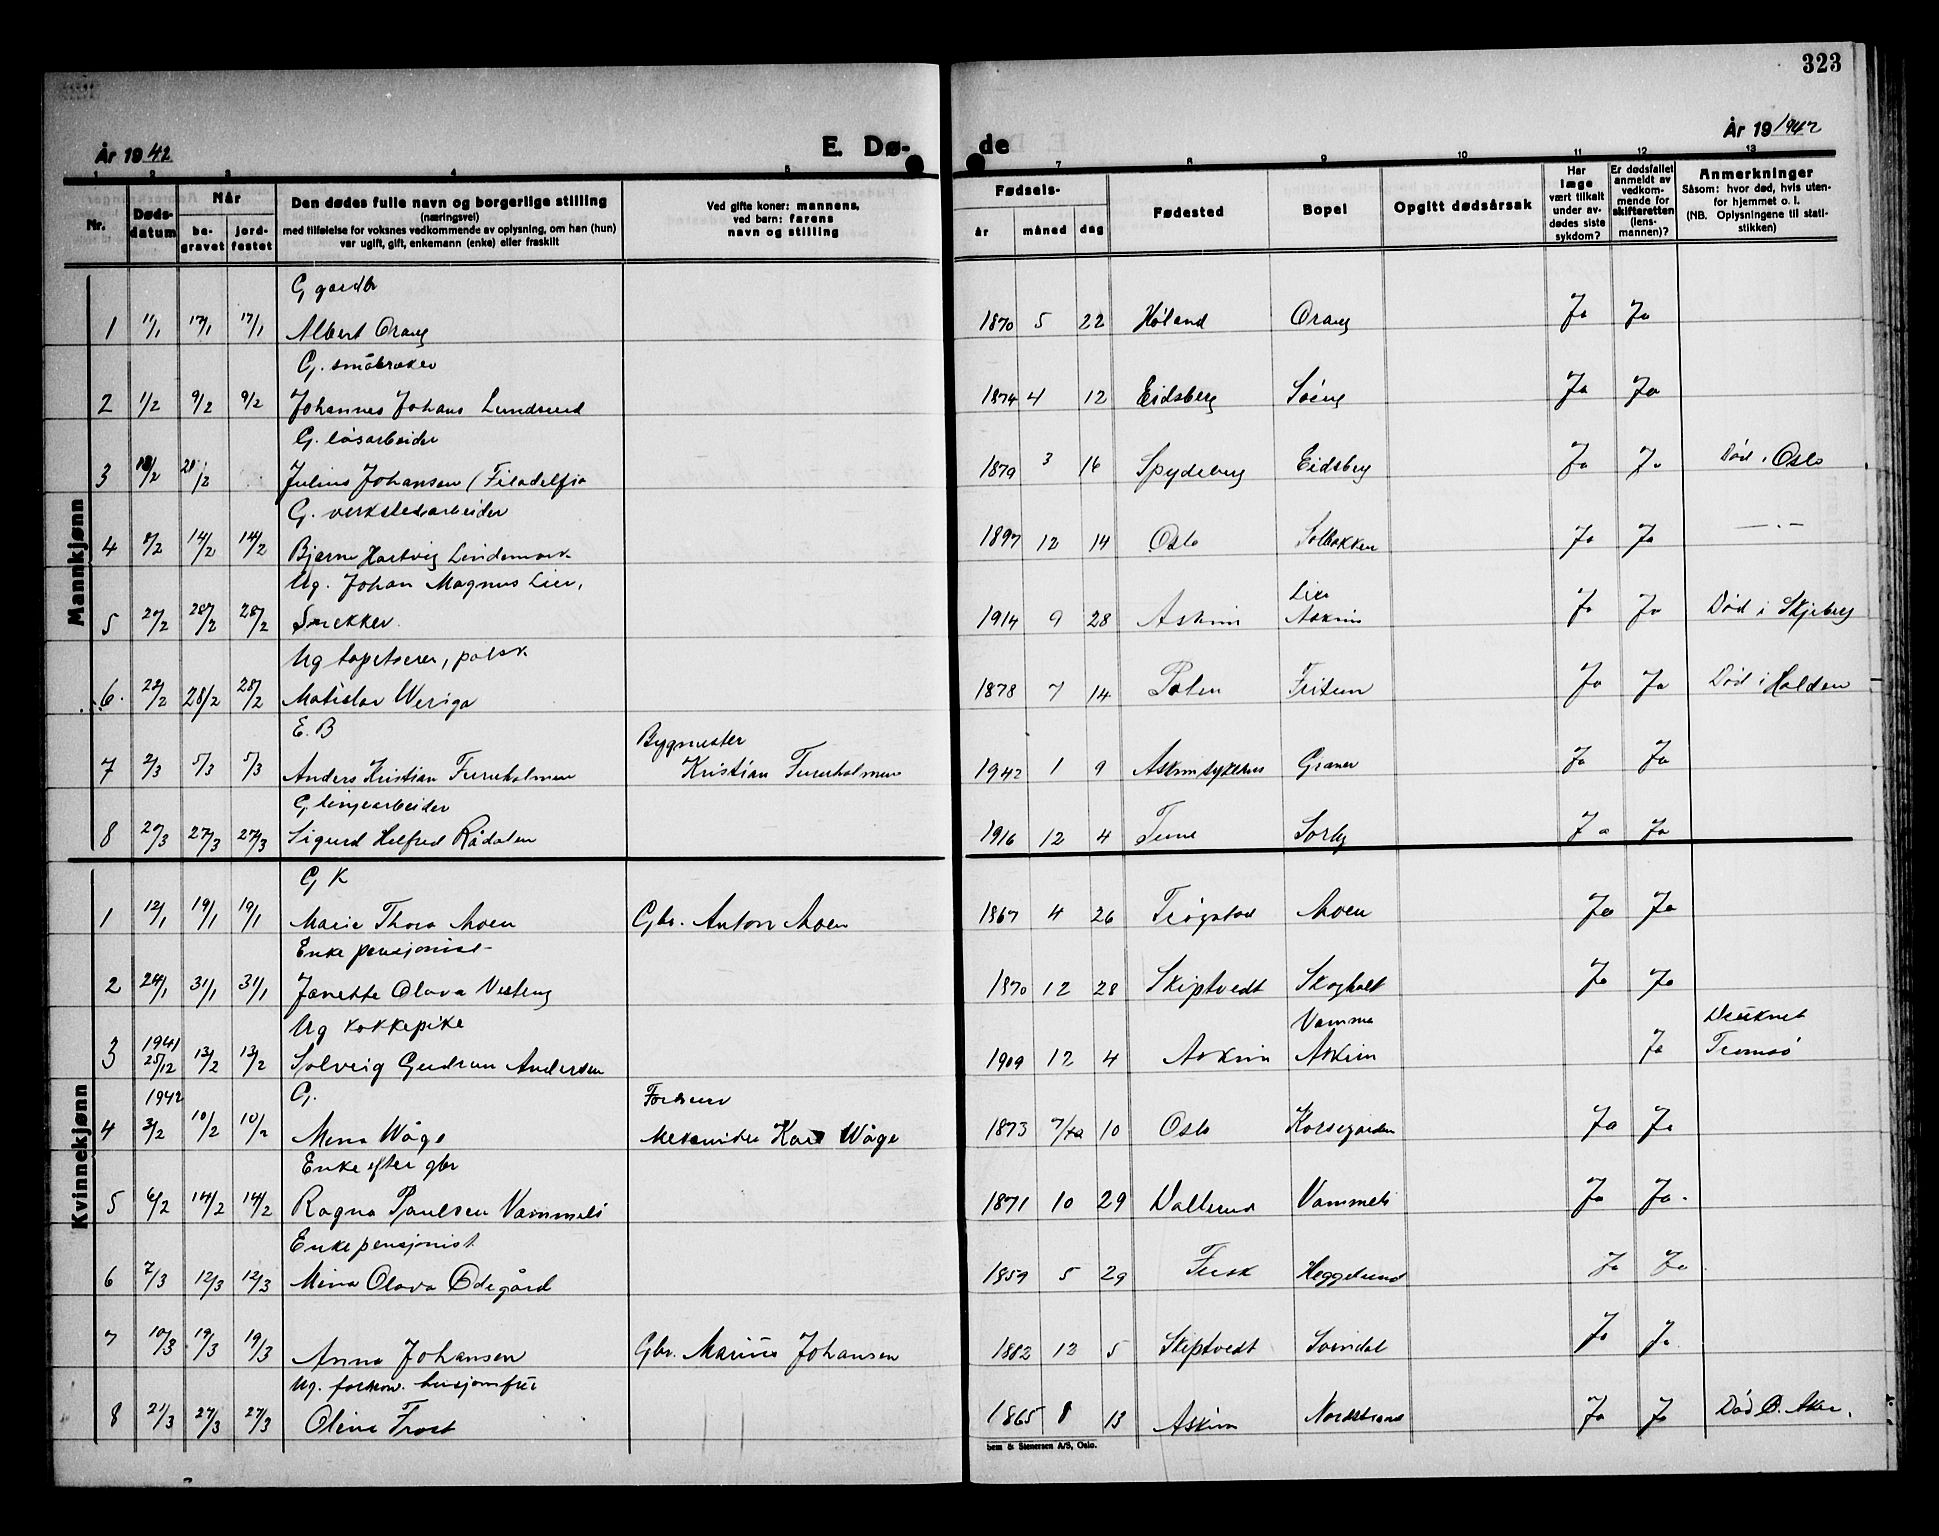 323
År 1942
E. Dø-
de
År 19 1942
1 2 3 4 5
7 8 9 10 11 12 13
Nr.
Døds-
datum
Når
be-
gravet
jord-
festet
Den dødes fulle navn og borgerlige stilling
(næringsvei)
med tilføielse for voksnes vedkommende av oplysning, om han (hun)
var ugift, gift, enkemann (enke) eller fraskilt
Ved gifte koner: mannens,
ved barn: farens
navn og stilling
Fødsels-
år måned dag
Fødested
Bopel
Opgitt dødsårsak
Har
læge
vært tilkalt
under av-
dødes siste
sykdom?
Er dødsfallet
anmeldt av
vedkom-
mende for
skifteretten
(lens-
mannen)?
Anmerkninger
Såsom: hvor død, hvis uten-
for hjemmet o. l.
(NB. Oplysningene til stati-
stikken)
Mannkjønn
G gardbr
1 11/1 17/1 17/1 Albert Oraug 1870 5 22 Høland Oraug Ja Ja
G. småbruker
2 1/2 9/2 9/2 Johannes Johans Lundsrud 1874 4 12 Eidsberg Ja Ja
G. løsarbeider
3 18/2 21/2 Julius Johansen (Filadelfia 1879 3 16 Spydeberg Eidsberg Ja Ja Død i Oslo
G. verkstedsarbeider
4 8/2 14/2 14/2 Bjarne Hartvig Lindemark 1897 12 14 Oslo Solbakken Ja Ja —·—
Ug. Johan Magnus Lier, Lier
5 20/2 28/2 28/2 Snekker. 1914 9 28 Askim Askim Ja Ja Død i Skjeberg
Ug tapetserer, polsk
6. 22/2 28/2 28/2 Matislav Weriga 1878 7 14 Polen Ja Ja Død i Halden
E. B Bygmester
7 2/3 5/3 5/3 Anders Kristian Furuholmen Kristian Furuholmen 1942 1 9 Askim sykehus Graner Ja Ja
G linjearbeider
8 20/3 27/3 27/3 Sigurd Helfred Rådalen 1916 12 4 Tune Sorby Ja Ja
Kvinnekjønn
G K
1 12/1 19/1 19/1 Marie Thora Moen Gbr. Anton Moen 1867 4 26 Trøgstad Moen Ja Ja
Enke pensjonist
2 24/1 31/1 31/1 Janette Olava Vesteng 1870 12 28 Skiptvedt Skogholt Ja Ja
Ug kokkepike Vamma Druknet
3 1941 25/12 13/2 13/2 Solveig Gudrun Andersen 1909 12 4 Askim Askim Ja Tromsø
1942 G. Forhenv
4 3/2 10/2 10/2 Mina Wåge Mekaniker Karl Wåge 1873 7/10 10 Oslo Korsegården Ja Ja
Enke efter gbr
5 6/2 14/2 14/2 Ragna Paulsen Vammeli 1871 10 29 Dallerud Vammeli Ja Ja.
Enke pensjonist
6 7/3 12/3 12/3 Mina Olava Ødegård 1859 5 29 Fusk Heggelund Ja Ja
7 10/3 19/3 19/3 Anna Johansen Gbr. Marius Johansen 1882 12 5 Skiptvedt Sorndal Ja Ja
Ug. forhenv.
8 21/3 27/3 27/3 Oline Frost 1865 8 13 Askim Nordstrand Ja Ja Død Ø. Aker.
bem & Stenersen A/S, Oslo.